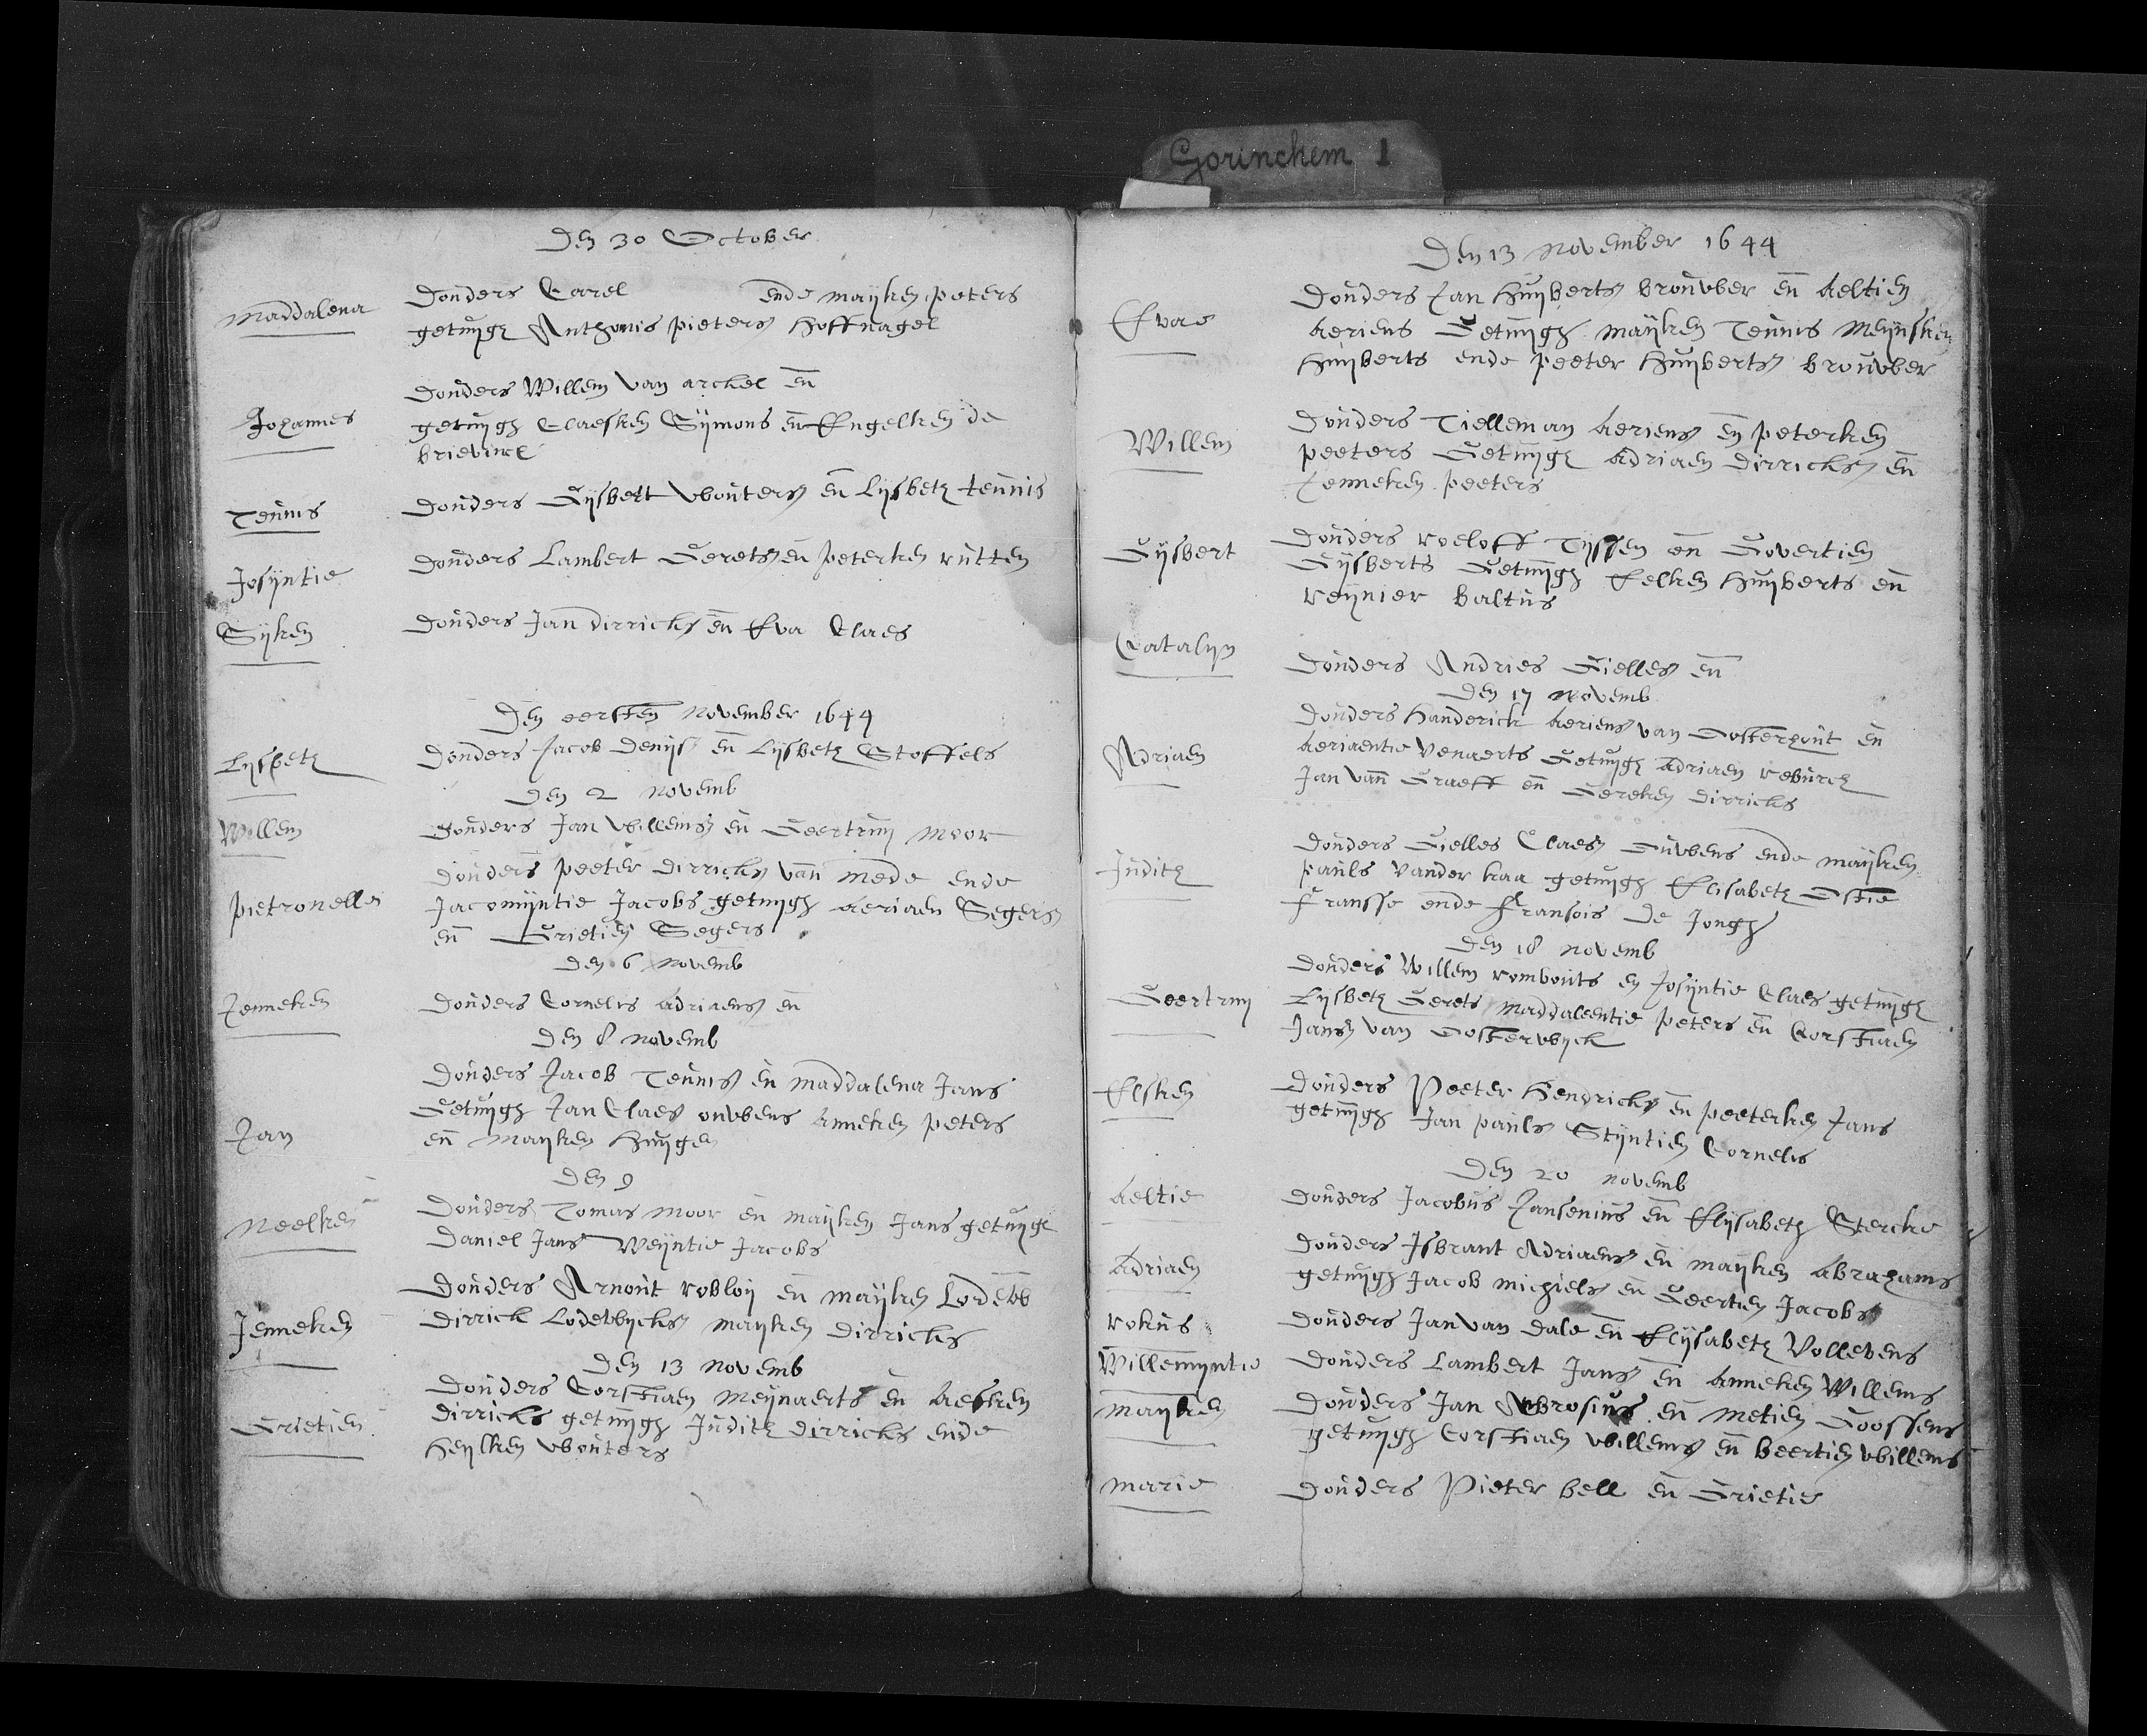 Gorinchem 1
Den 30 October
Maddalena
Donders Carel ende mayken peters
getuijge Anthonis pieters Hoffnagel
Johannes
Donders Willem van archel en
getuijgh Claesken Sijmons en Engelken de
Teunis
Donders Gijsbert Wouters en Lijsbeth teunis
Josijntie
Donders Lambert Gerets en peterken rutten
Sijken
Donders Jan dirricks en Eva Claes
Den eersten November 1644
Lijsbeth
Donders Jacob Denijs en Lijsbeth Stoffels
Den 2 Novemb
Willem
Donders Jan Willems en Geertruij Moor
Pietronella
Donders peeter dirricks van mede ende
Jacomijntie Jacobs getuijgh Aeriaen Segers
en Grietien Segers
Den 6 Novemb
Jenneken
Donders Cornelis Adriaens en
Den 8 Novemb
Jan
Donders Jacob Teunis en Maddalena Jans
Getuijgh Jan Claes ouwens Anneken peters
en Mayken Huijgen
Den 9
Neelken
Donders Tomas Moor en mayken Jans getuijge
Daniel Jans Weijntie Jacobs
Jenneken
Donders Arnout robloij en mayken Lodeww
Dirrick Lodewijcks mayken dirricks
Den 13 Novemb
Grietien
Donders Corstiaen Meijnaerts en Aesken
dirricks getuijgh Judith dirricks ende
Heijlken Wouters
Den 13 November 1644
Evae
Donders Jan Huijberts brouwer en Aeltien
Aeriens Getuijgh mayken Teunis Meijnsken
Huijberts ende peeter Huijberts brouwer
Willem
Donders Tielleman Aeriens en peterken
peeters Getuijge Adriaen dirricks en
Jenneken peeters
Gijsbert
Donders roeloff Tijssen en Govertien
Gijsberts Getuijgh Eelken Huijberts en
reijnier baltus
Catalijn
Donders Andries Gielles en
Den 17 Novemb
Adriaen
Donders Handerick Aeriens van Oosterhout en
Aeriaentie Venaerts Getuijge Adriaen reburch
Jan van Graeff en Gereken dirricks
Judith
Donders Gielles Claes Ouwens ende mayken
pauls vander kaa getuijgh Elisabeth
Fransse ende Fransois de Jongh
Den 18 Novemb
Geertruij
Donders Willem rombouts en Josijntie Claes getuijge
Lijsbeth Gerets Maddaleentie peters en Corstiaen
Jans van Oosterwijck
Elsken
Donders Peeter Hendricks en peeterken Jans
getuijgh Jan pauls Stijntien Cornelis
Den 20 Novemb
Aeltie
Donders Jacobus Jansenius en Elijsabeth Stercke
Adriaen
Donders Isbrant Adriaens en mayken Abrahams
getuijgh Jacob michiels en Geertien Jacobs
rokus
Donders Jan van dale en Elijsabeth Vollevens
Willemijntie
Donders Lambert Jans en Anneken Willems
Mayken
Donders Jan Ambrosius en Metien Goossens
getuijgh Corstiaen Willems en beertien Willems
Marie
Donders Pieter bell en Grietie